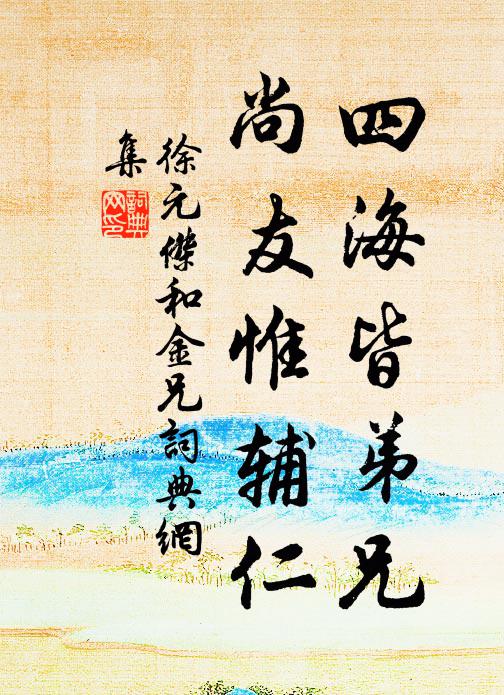 四海皆弟兄
尚友惟辅仁
徐元傑和金兄詞典網
集
詞典
网印